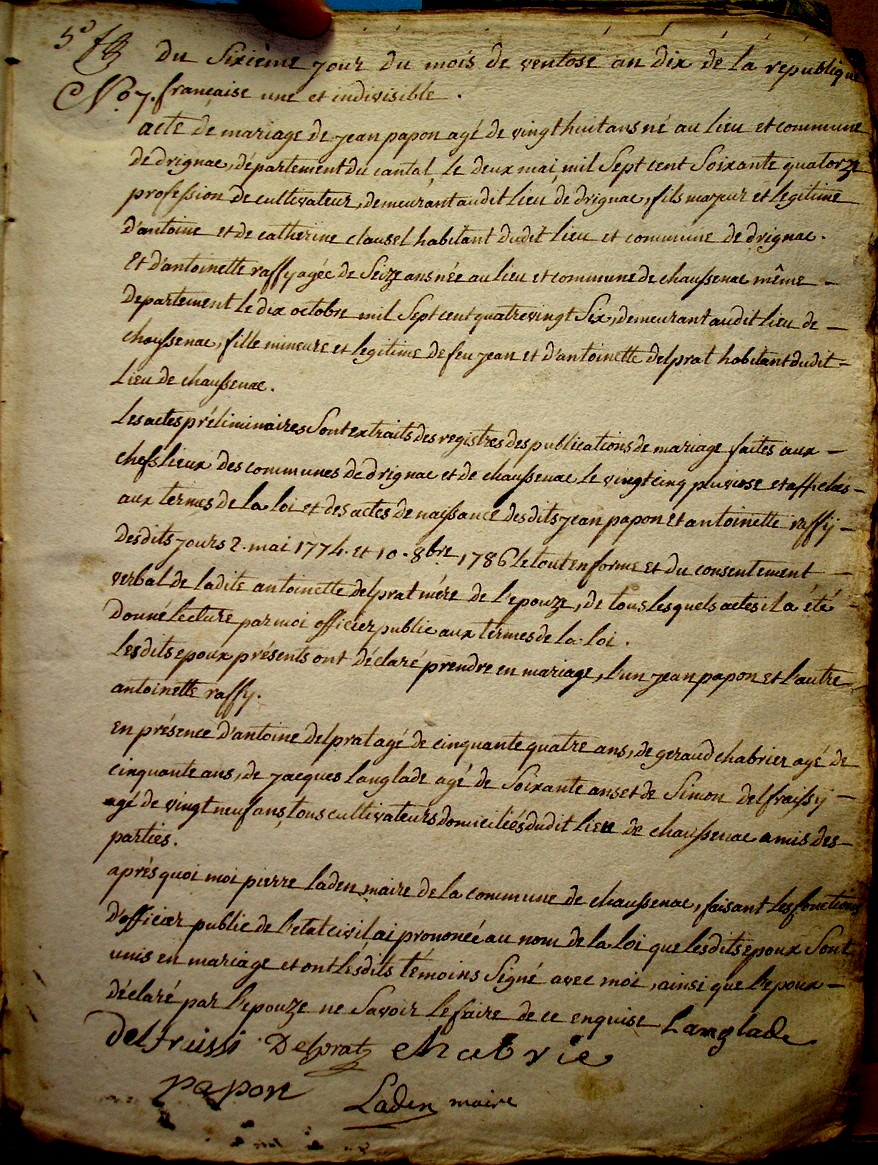 5e
Du Sixième jour du mois de ventose an dix de la republique
No 7. française une et indivisible.
acte de mariage de jean papon agé de vingt huit ans né au lieu et commune
de drignac, département du cantal, le deux mai mil Sept cent Soixante quatorze
profession de cultivateur, demeurant audit lieu de drignac, fils majeur et legitime
d'antoine et de catherine clausel habitant dudit lieu et commune de drignac.
Et d'antoinette raffy agée de Seize ans née au lieu et commune de chaussenac même —
departement le dix octobre mil Sept cent quatrevingt Six, demeurant audit lieu de —
chaussenac, fille mineure et legitime de feu jean et d'antoinette delprat habitant dudit —
lieu de chaussenac.
les actes préliminaires Sont extraits des registres des publications de mariage faites aux —
chefs lieux des communes de drignac et de chaussenac le vingt cinq pluviose et affichés —
aux termes de la loi et des actes de naissance desdits jean papon et antoinette raffy —
desdits jours 2. mai 1774. et 10. 8bre 1786 le tout en forme et du consentement —
verbal de ladite antoinette delprat mère de l'epouze, de tous lesquels actes il a été —
donné lecture par moi officier public aux termes de la loi.
lesdits epoux présents ont déclaré prendre en mariage, l'un jean papon et l'autre
antoinette raffy.
en présence d'antoine delprat agé de cinquante quatre ans, de geraud chabrier agé de
cinquante ans, de jacques langlade agé de Soixante ans et de Simon delfraissy —
agé de vingt neuf ans, tous cultivateurs domiciliés dudit lieu de chaussenac amis des —
parties.
après quoi moi pierre laden maire de la commune de chaussenac, faisant les fonctions
d'officier public de l'etat civil ai prononcé au nom de la loi que lesdits epoux Sont
unis en mariage et ont lesdits témoins Signé avec moi, ainsi que l'epoux —
déclaré par l'epouze ne Savoir le faire de ce enquise Langlade
delfraissi Delprat chabrie
papon
Laden maire